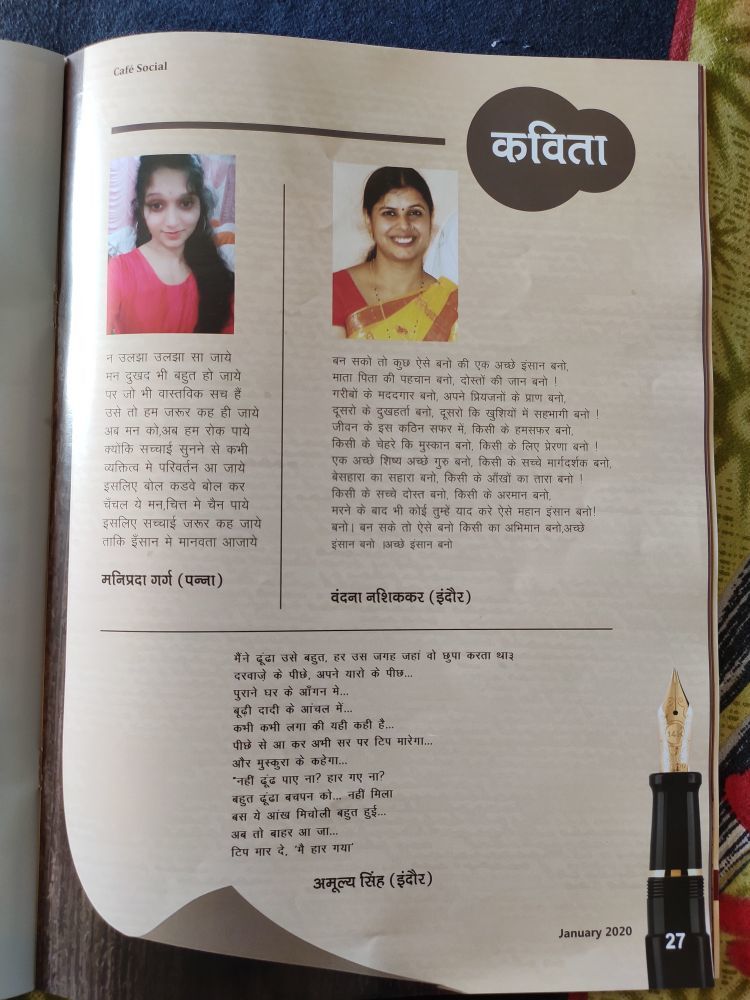 Café Social
कविता
न उलझा उलझा सा जाये
मन दुखद भी बहुत हो जाये
पर जो भी वास्तविक सच हैं
उसे तो हम जरूर कह ही जाये
अब मन को,अब हम रोक पाये
क्योंकि सच्चाई सुनने से कभी
व्यक्तित्व मे परिवर्तन आ जाये
इसलिए बोल कडवे बोल कर
चँचल ये मन,चित्त मे चैन पाये
इसलिए सच्चाई जरूर कह जाये
ताकि इँसान मे मानवता आजाये
मनिप्रदा गर्ग (पन्ना)
बन सको तो कुछ ऐसे बनो की एक अच्छे इंसान बनो,
माता पिता की पहचान बनो, दोस्तों की जान बनो !
गरीबों के मददगार बनो, अपने प्रियजनों के प्राण बनो,
दूसरो के दुखहर्ता बनो, दूसरो कि खुशियों में सहभागी बनो !
जीवन के इस कठिन सफर में, किसी के हमसफर बनो,
किसी के चेहरे कि मुस्कान बनो, किसी के लिए प्रेरणा बनो !
एक अच्छे शिष्य अच्छे गुरु बनो, किसी के सच्चे मार्गदर्शक बनो,
बेसहारा का सहारा बनो, किसी के आँखों का तारा बनो !
किसी के सच्चे दोस्त बनो, किसी के अरमान बनो,
मरने के बाद भी कोई तुम्हें याद करे ऐसे महान इंसान बनो!
बनो। बन सके तो ऐसे बनो किसी का अभिमान बनो,अच्छे
इंसान बनो ।अच्छे इंसान बनो
वंदना नशिककर (इंदौर)
मैंने ढूंढा उसे बहुत, हर उस जगह जहां वो छुपा करता था३
दरवाज़े के पीछे, अपने यारो के पीछ...
पुराने घर के आँगन मे...
बूढ़ी दादी के आंचल में...
कभी कभी लगा की यही कही है...
पीछे से आ कर अभी सर पर टिप मारेगा...
और मुस्कुरा के कहेगा...
"नहीं ढूंढ पाए ना? हार गए ना?
बहुत ढूंढा बचपन को... नहीं मिला
बस ये आंख मिचोली बहुत हुई...
अब तो बाहर आ जा...
टिप मार दे, 'मै हार गया'
अमूल्य सिंह (इंदौर)
January 2020
27